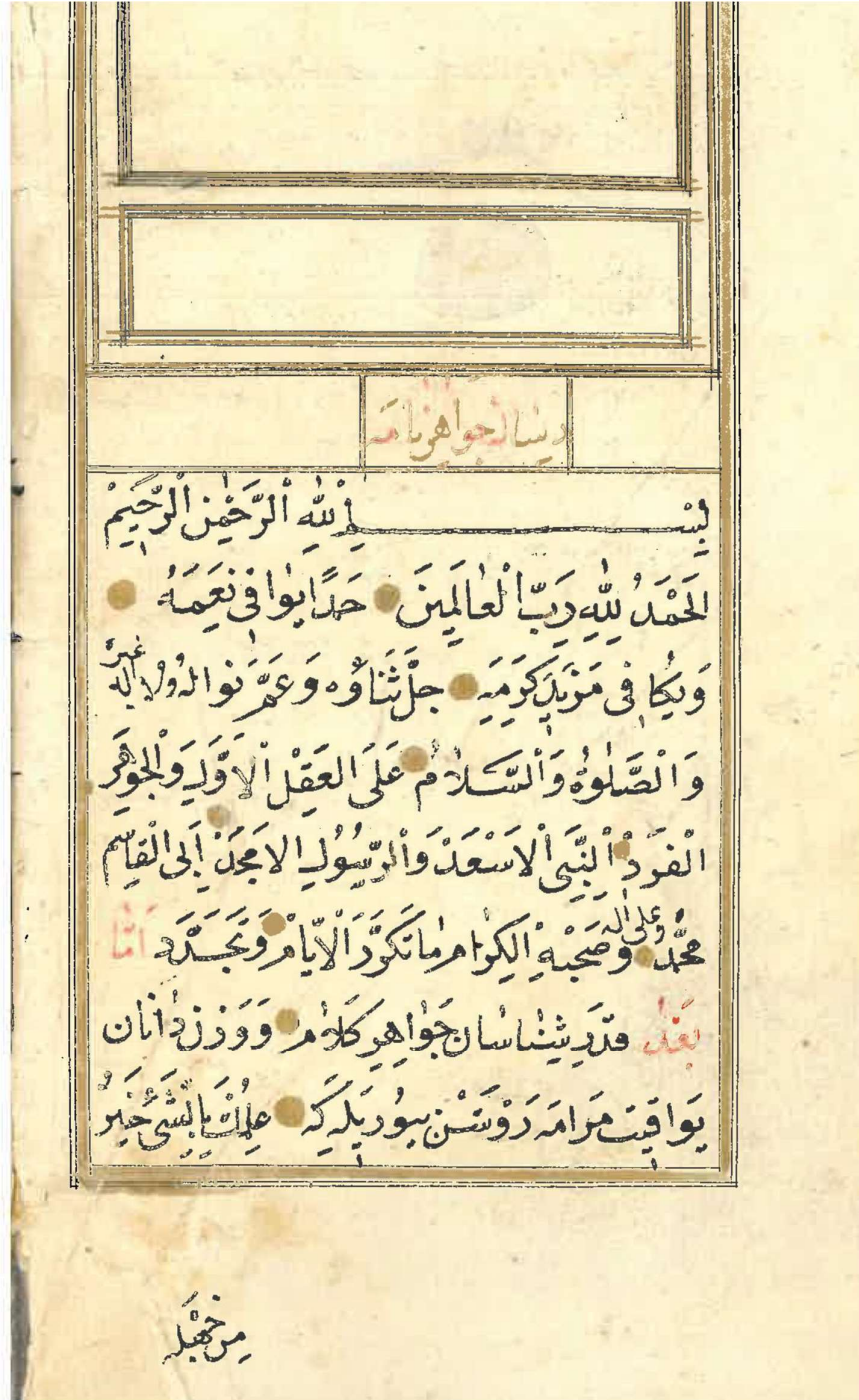 جواهرنامه
بِسْمِ اللّٰهِ الرَّحْمٰنِ الرَّحِيمْ
اَلْحَمْدُ لِلّٰهِ رَبِّ الْعَالَمِينَ حَمْدًا يُوَافِى نِعَمَهُ
وَيُكَافِى مَزِيدَ كَرَمِهِ جَلَّ ثَنَاؤُه وَعَمَّ نَوَالُهُ وَلَا اِلٰهَ غَيْرُهُ
وَالْصَّلٰوةُ وَالْسَّلَامُ عَلَى الْعَقْلِ الْاَوَّلِ وَالْجَوْهَرِ
الْفَرْدِ اَلنَّبِىِّ الْاَسْعَدْ وَالرَّسُولِ الْاَمْجَدْ اَبِى الْقَاسِمِ
مُحَمَّدْ وَعَلَى اٰلِهِ وَصَحْبِهِ الْكِرَامِ مَا تَكَرَّرَ الْاَيَّامْ وَتَجَدَّدَ اَمَّا
بَعْدُ قَدَرِ شِنَاسَانِ جَوَاهِرِ كَلَامْ وَوَزْن دَانَان
يَوَاقِيت مَرَامَه رَوْشَنْ بيورِيلَه كِه عِلْمُكَ بِالشَّىْءِ خَيْرٌ
مِن جَهْلِهِ